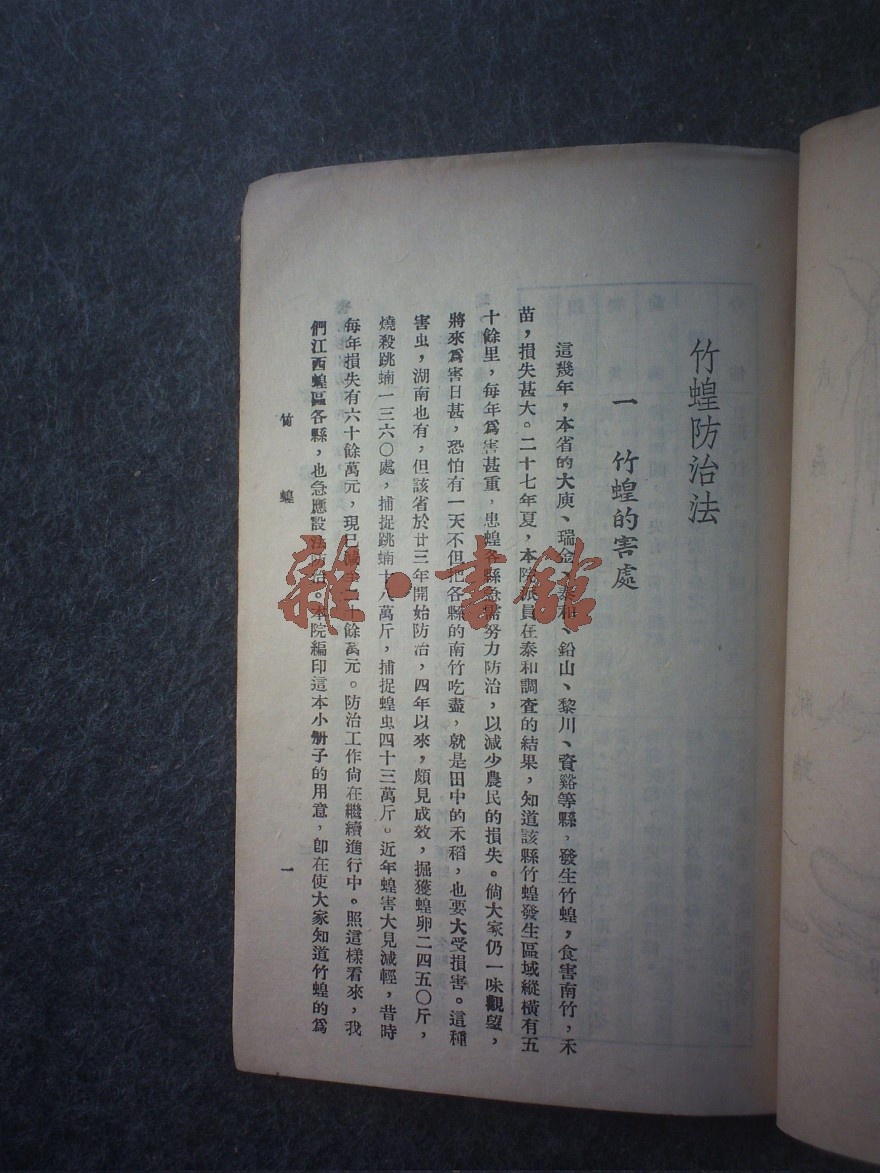 竹蝗防治法
一 竹蝗的害處
這幾年，本省的大庾、瑞金、泰和、鉛山、黎川、資谿等縣，發生竹蝗，食害南竹，禾
苗，損失甚大。二十七年夏，本院派員在泰和調查的結果，知道該縣竹蝗發生區域縱橫有五
十餘里，每年爲害甚重，患蝗各縣急需努力防治，以減少農民的損失。倘大家仍一味觀望，
將來爲害日甚，恐怕有一天不但把各縣的南竹吃盡，就是田中的禾稻，也要大受損害。這種
害虫，湖南也有，但該省於廿三年開始防治，四年以來，頗見成效，掘獲蝗卵二四五〇斤，
燒殺跳蝻一三六〇處，捕捉跳蝻十八萬斤，捕捉蝗虫四十三萬斤。近年蝗害大見減輕，昔時
每年損失有六十餘萬元，現已減 十餘萬元。防治工作尙在繼續進行中。照這樣看來，我
們江西蝗區各縣，也急應設法防治。本院編印這本小册子的用意，卽在使大家知道竹蝗的爲
竹 蝗
一
雜·書館